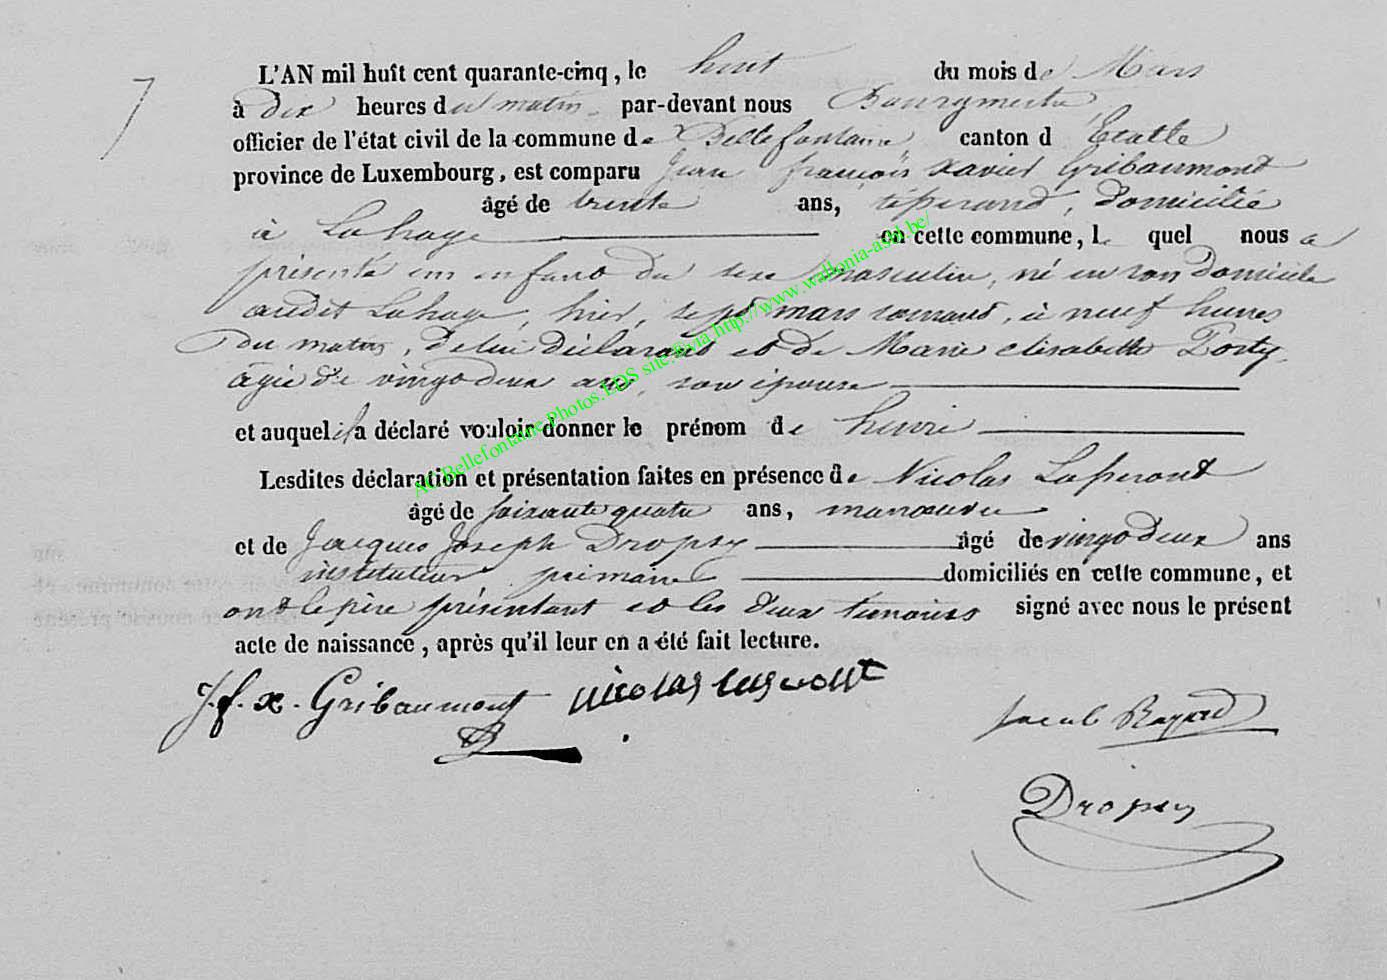 7
L'AN mil huit cent quarante-cinq, le huit du mois de Mars
à dix heures du matin, par-devant nous Bourgmestre
officier de l'état civil de la commune de Bellefontaine canton d'Etalle
province de Luxembourg, est comparu Jean françois xavier Gribaumont
âgé de trente ans, domicilié
à Lahage en cette commune, lequel nous a
présenté un enfant du sexe masculin, né en son domicile
audit Lahage, hier, sept mars courant, à neuf heures
du matin, de lui déclarant et de Marie elisabeth
agée de vingt deux ans, son épouse
et auquel il a déclaré vouloir donner le prénom de henri
Lesdites déclaration et présentation faites en présence de Nicolas
âgé de soixante quatre ans, manoeuvre
et de Jacques Joseph Dropsy âgé de vingt deux ans
instituteur primaire domiciliés en cette commune, et
ont le père présentant et les deux temoins signé avec nous le présent
acte de naissance, après qu'il leur en a été fait lecture.
J. f. x. Gribaumont nicolas
Dropsy
AC Bellefontaine.Photos.EDS site:©via http://www.wallonia-asbl.be/